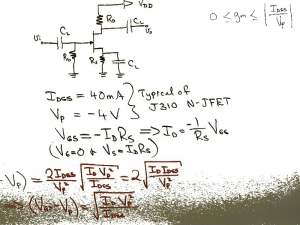 VDD
RD
CL
vo
0 ≤ gm ≤ |IDSS/VP|
CL
vi
RG
RS
CL
IDSS = 40mA } Typical of
VP = -4V J310 N-JFET
VGS = -IDRS => ID = -1/RS VGS
(VG=0 & VS = IDRS)
-VP) = 2IDSS/VP² √(ID VP²/IDSS) = 2√(ID IDSS/VP²)
=> (VGS - VP) = √(ID VP²/IDSS)